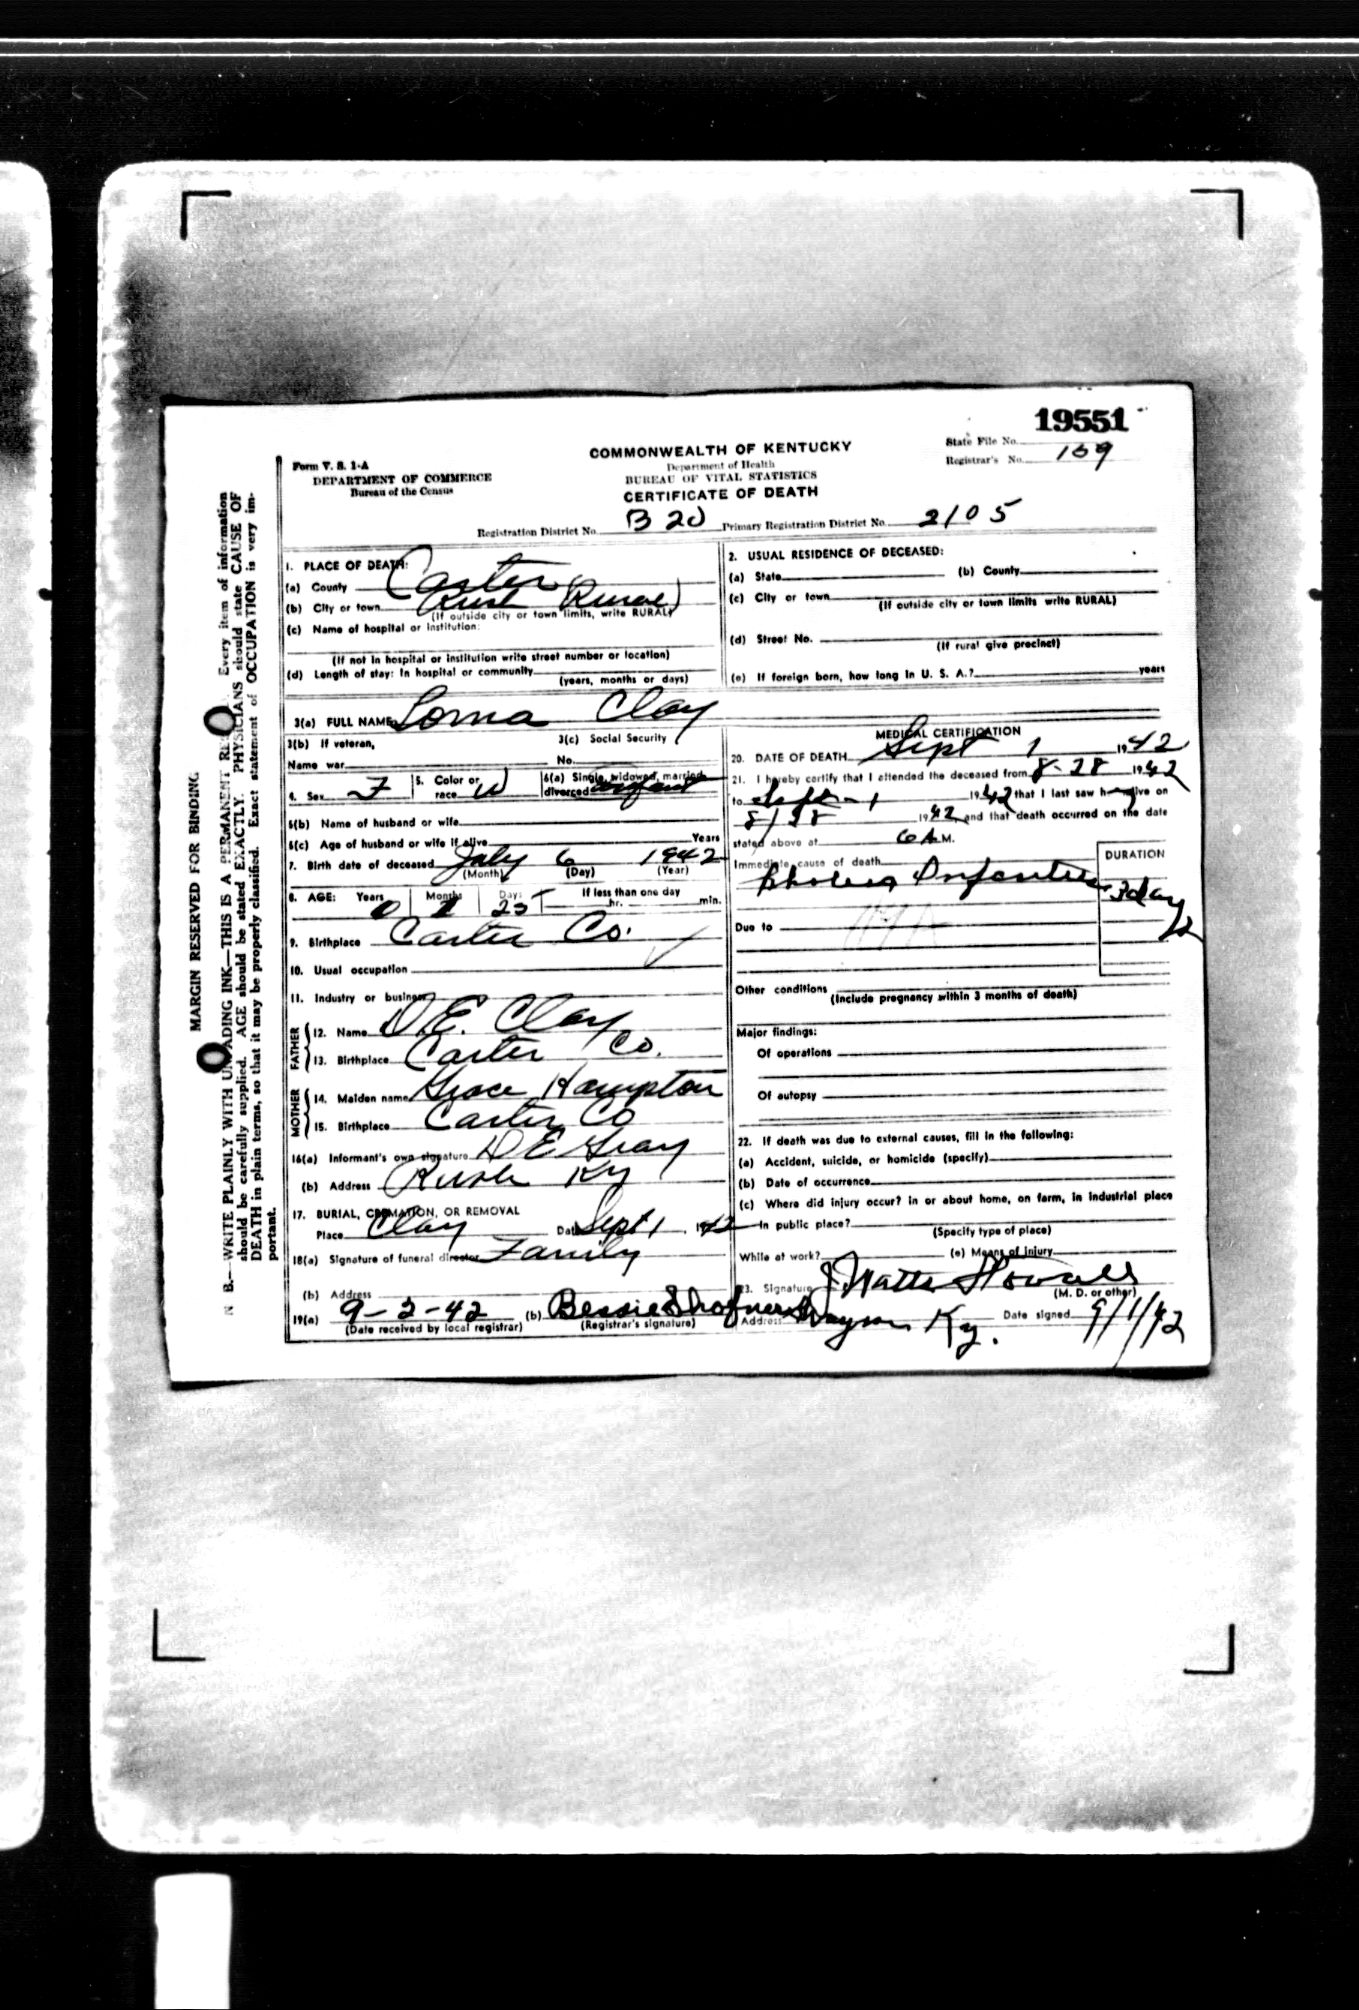 19551
State File No.
Registrar's No. 159
Form V. S. 1-A
DEPARTMENT OF COMMERCE
Bureau of the Census
COMMONWEALTH OF KENTUCKY
Department of Health
BUREAU OF VITAL STATISTICS
CERTIFICATE OF DEATH
Registration District No. B 20 Primary Registration District No. 2105
MARGIN RESERVED FOR BINDING
N B.—WRITE PLAINLY WITH UNFADING INK—THIS IS A PERMANENT Every item of information
should be carefully supplied. AGE should be stated EXACTLY. PHYSICIANS should state CAUSE OF
DEATH in plain terms, so that it may be properly classified. Exact statement of OCCUPATION is very im-
portant.
1. PLACE OF DEATH:
(a) County Carter
(b) City or town Rush (Rural)
(If outside city or town limits, write RURAL)
(c) Name of hospital or institution:
(If not in hospital or institution write street number or location)
(d) Length of stay: In hospital or community
(years, months or days)
2. USUAL RESIDENCE OF DECEASED:
(a) State (b) County
(c) City or town
(If outside city or town limits write RURAL)
(d) Street No.
(If rural give precinct)
(e) If foreign born, how long in U. S. A.? years
3(a) FULL NAME Lorna Clay
3(b) If veteran,
Name war
3(c) Social Security
No.
4. Sex F 5. Color or race W 6(a) Single, widowed, married, divorced Infant
6(b) Name of husband or wife
6(c) Age of husband or wife if alive Years
7. Birth date of deceased July 6 1942
(Month) (Day) (Year)
8. AGE: Years 0 Months 1 Days 25 If less than one day
hr. min.
9. Birthplace Carter Co.
10. Usual occupation
11. Industry or business
FATHER
12. Name D.E. Clay
13. Birthplace Carter Co.
MOTHER
14. Maiden name Grace Hampton
15. Birthplace Carter Co
16(a) Informant's own signature D E Gray
(b) Address Rush Ky
17. BURIAL, CREMATION, OR REMOVAL
Place Clay Date Sept 1 1942
18(a) Signature of funeral director Family
(b) Address
19(a) 9-2-42 (b) Bessie
(Date received by local registrar) (Registrar's signature)
MEDICAL CERTIFICATION
20. DATE OF DEATH Sept 1 1942
21. I hereby certify that I attended the deceased from 8-28 1942
to Sept-1 1942 that I last saw h alive on
8/28 1942, and that death occurred on the date
stated above at 6 A.M.
Immediate cause of death
DURATION
Cholera Infantum 3 days
Due to
Other conditions
(Include pregnancy within 3 months of death)
Major findings:
Of operations
Of autopsy
22. If death was due to external causes, fill in the following:
(a) Accident, suicide, or homicide (specify)
(b) Date of occurrence
(c) Where did injury occur? in or about home, on farm, in industrial place
in public place?
(Specify type of place)
While at work? (e) Means of injury
23. Signature J Watts Stovall
(M. D. or other)
Address Grayson Ky. Date signed 9/1/42